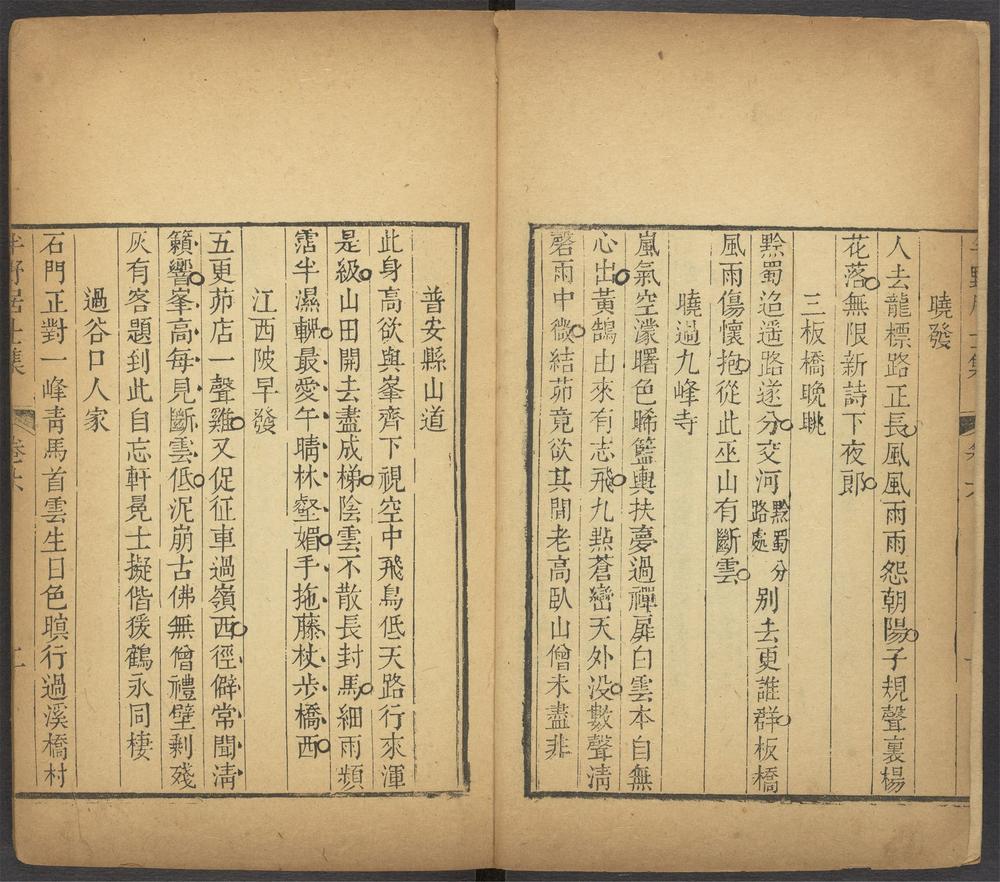 曉發
人去龍標路正長風風雨雨怨朝陽子規聲裏楊
花落無限新詩下夜郎
三板橋晚眺
黔蜀迢遥路遂分交河黔蜀分路處別去更誰群板橋
風雨傷懷抱從此巫山有斷雲
曉過九峰寺
嵐氣空濛曙色晞籃輿扶夢過禪扉白雲本自無
心出黃鵠由來有志飛九點蒼巒天外没數聲清
磬雨中微結茆竟欲其間老高臥山僧未盡非
普安縣山道
此身高欲與峯齊下視空中飛鳥低天路行來渾
是級山田開去盡成梯陰雲不散長封馬細雨頻
霑半濕輧最愛午晴林壑媚手拖藤杖步橋西
江西陂早發
五更茆店一聲雞又促征車過嶺西徑僻常聞清
籟響峯高每見斷雲低泥崩古佛無僧禮壁剩殘
灰有客題到此自忘軒冕士擬偕猨鶴永同棲
過谷口人家
石門正對一峰靑馬首雲生日色暝行過溪橋村
半野居士集 卷六 二